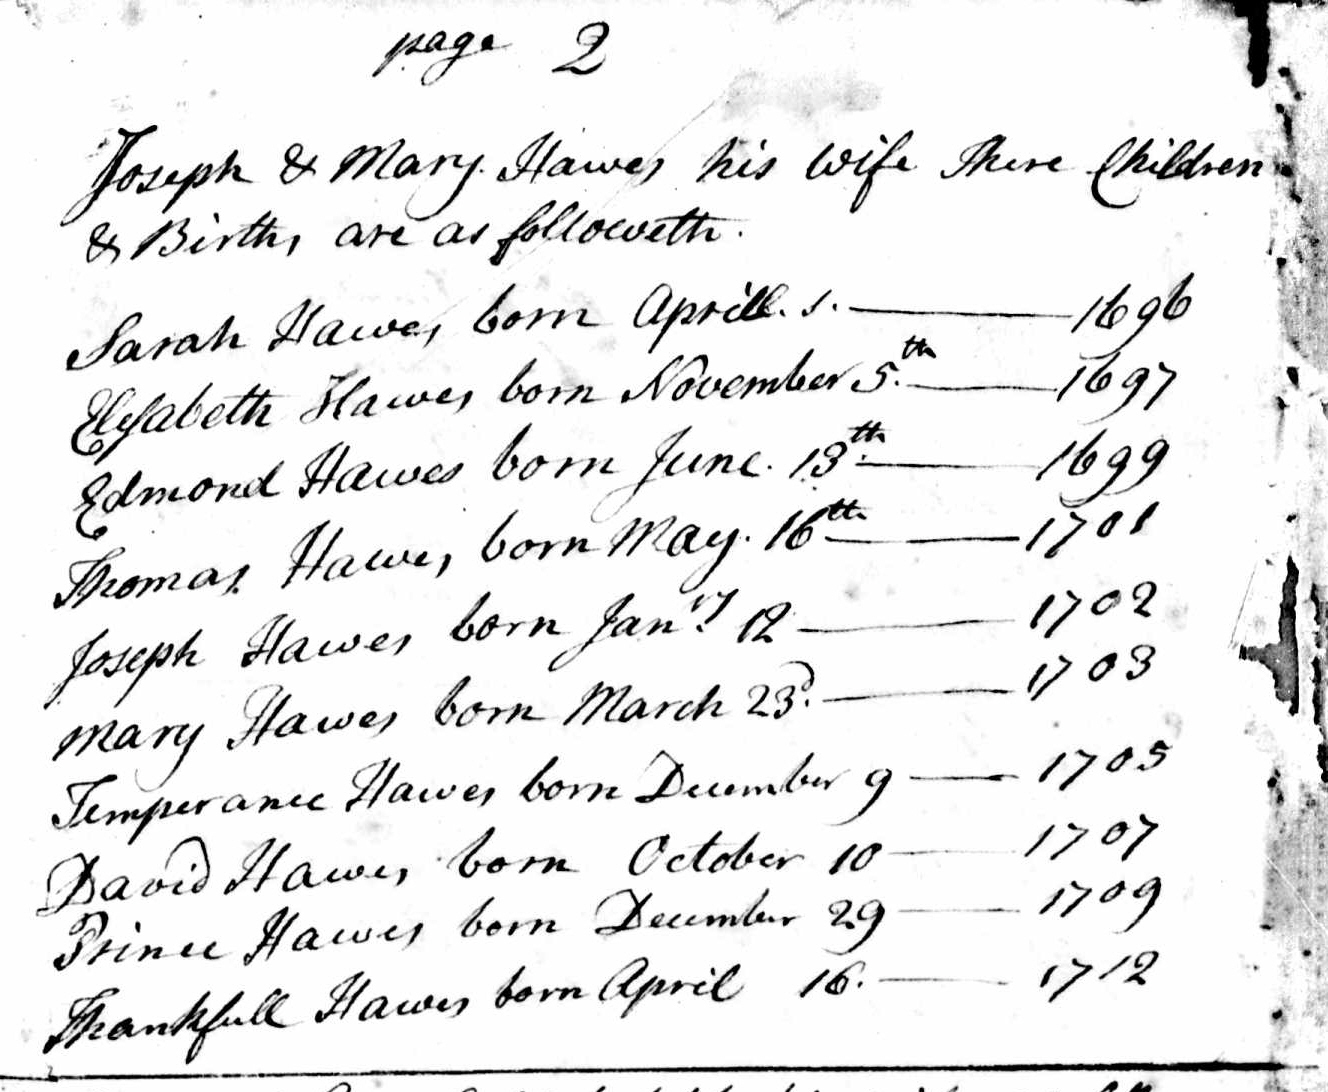 page 2
Joseph & Mary. Hawes his wife There Children
& Births are as followeth.
Sarah Hawes born Aprill. 1. — 1696
Elysabeth Hawes born November 5.th — 1697
Edmond Hawes born June. 13th — 1699
Thomas Hawes born May. 16th — 1701
Joseph Hawes born Janry 12 — 1702
Mary Hawes born March 23d. — 1703
Temperance Hawes born December 9 — 1705
David Hawes born October 10 — 1707
Prince Hawes born December 29 — 1709
Thankfull Hawes born April 16. — 1712